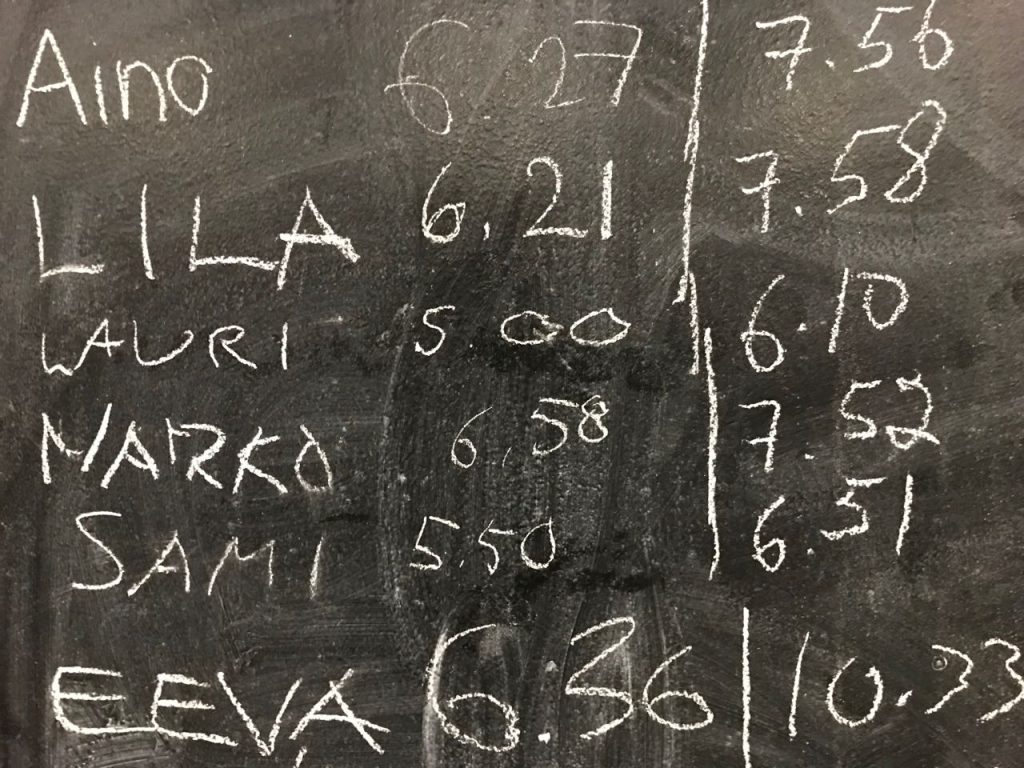 Aino 6.27 | 7.56
LILA 6.21 | 7.58
LAURI 5.00 | 6.10
MARKO 6.58 | 7.52
SAMI 5.50 | 6.51
EEVA 6.36 | 10.33